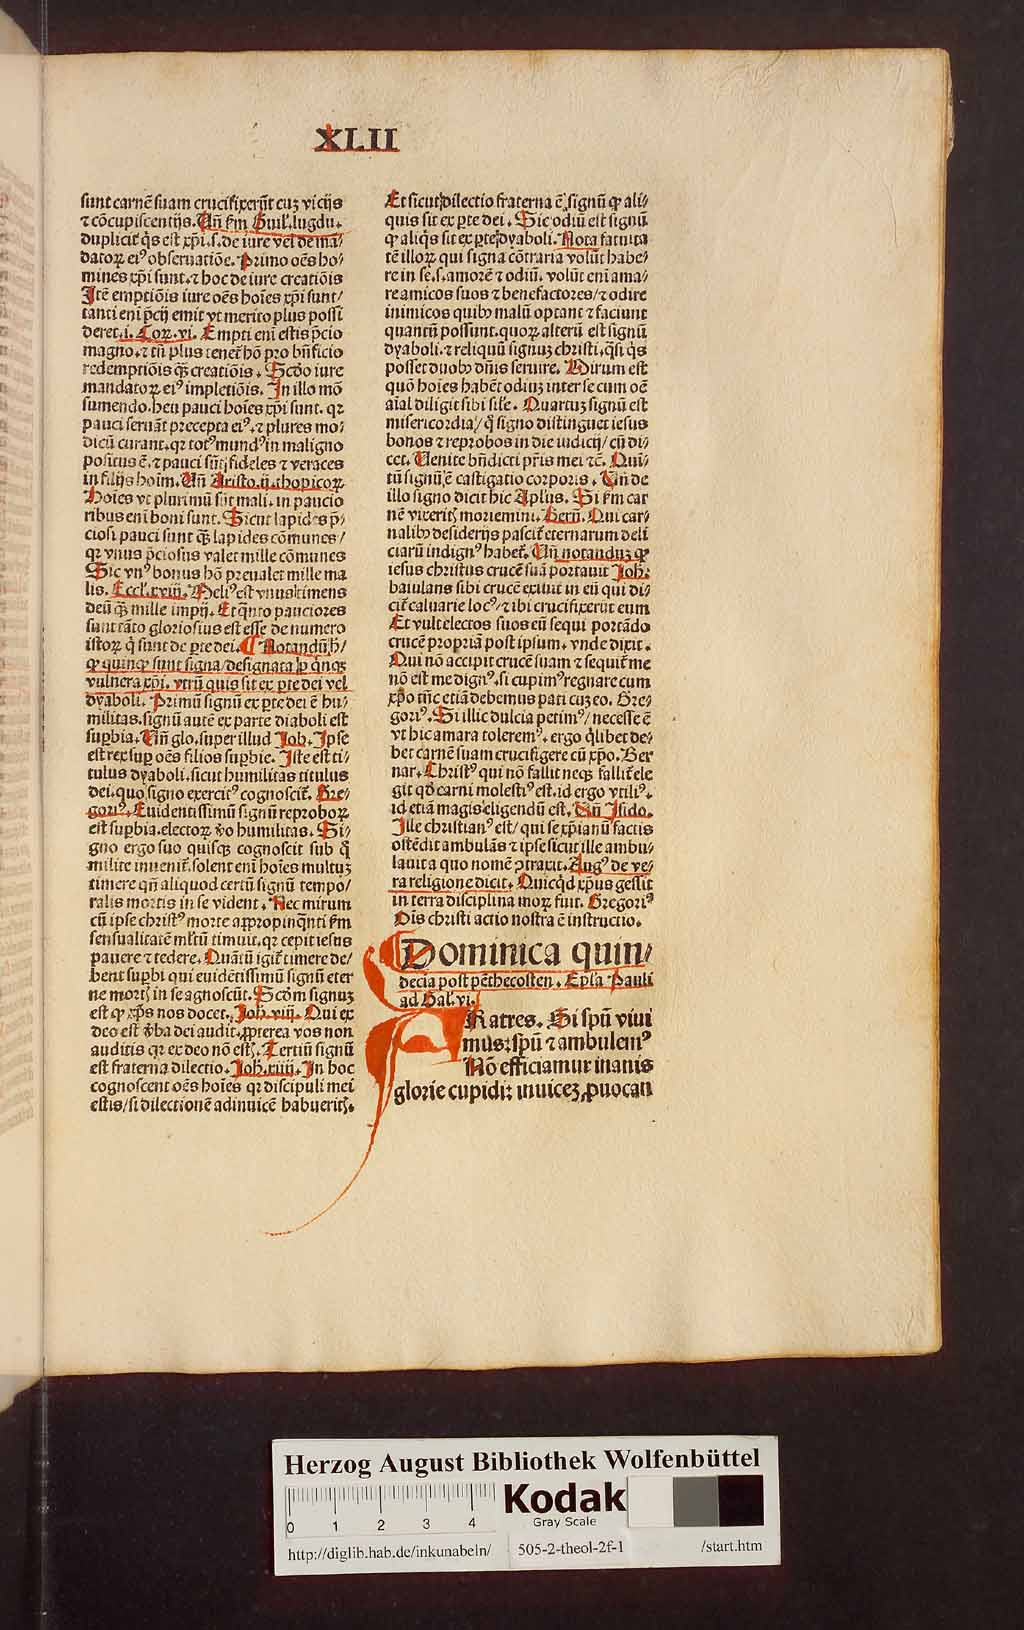 XLII
sunt carnē suam crucifixerūt cuȝ vicijs
⁊ cōcupiscentijs. Uñ ẜm Guilꝉ. lugdu.
duplicit̃ q̇s est xp̄i .s. de iure vel de mā⸗
datoꝝ eiꝰ obseruatiōe. Primo oēs ho⸗
mines xp̄i sunt. ⁊ hoc de iure creatiōis
Itē emptiōis iure oēs hoīes xp̄i sunt/
tanti enī p̄cij emit vt merito plus possi
deret. i. Coꝝ. vi. Empti enī estis p̄cio
magno. ⁊ tñ plus tenet̃ hō pro bn̄ficio
redemptiōis qȝ̄ creatiōis. Scd̄o iure
mandatoꝝ eiꝰ impletiōis. In illo mō
sumendo. heu pauci hoīes xp̄i sunt. qꝛ
pauci seruāt precepta eiꝰ. ⁊ plures mo⸗
dicū curant. qꝛ totꝰ mundꝰ in maligno
positus ē. ⁊ pauci sūt fideles ⁊ veraces
in filijs hoīm. Uñ Aristo. ij. thopicoꝝ.
Hoīes vt plurimū sūt mali. in paucio
ribus enī boni sunt. Sicut lapides p̄⸗
ciosi pauci sunt qȝ̄ lapides cōmunes/
qꝛ vnus p̄ciosus valet mille cōmunes
Sic vnꝰ bonus hō preualet mille ma
lis. Eccl̄. xviij. Meliꝰ est vnus timens
deū qȝ̄ mille impij. Et q̇̄nto pauciores
sunt tāto gloriosius est esse de numero
istoꝝ q̇ sunt de ꝑte dei. ¶ Notandū ẖ/
ꝙ quinqȝ sunt signa/designata ꝑ q̇nqȝ
vulnera xp̄i. vtrū quis sit ex ꝑte dei vel
dyaboli. Primū signū ex ꝑte dei ē hu⸗
militas. signū autē ex parte diaboli est
suꝑbia. Uñ glo. super illud Job. Ipse
est rex suꝑ oēs filios suꝑbie. Iste est ti⸗
tulus dyaboli. sicut humilitas titulus
dei. quo signo exercitꝰ cognoscit̃. Gre⸗
goriꝰ. Euidentissimū signū reproboꝝ
est suꝑbia. electoꝝ v̊o humilitas. Si⸗
gno ergo suo quisqȝ cognoscit sub q̊
milite inuenit̃. solent enī hoīes multuȝ
timere qñ aliquod certū signū tempo/
ralis mortis in se vident. Nec mirum
cū ipse christꝰ morte appropinq̇̄nti ẜm
sensualitatē ml̄tū timuit. qꝛ cepit iesus
pauere ⁊ tedere. Quātū igit̃ timere de/
bent suꝑbi qui euidētissimū signū eter
ne mort̕ in se agnoscūt. Scd̄m signuȝ
est ꝙ xp̄s nos docet. Joh. viij. Qui ex
deo est v̊ba dei audit. ꝓpterea vos non
auditis qꝛ ex deo nō est̕. Tertiū signū
est fraterna dilectio. Joh. xiiij. In hoc
cognoscent oēs hoīes qꝛ discipuli mei
estis/si dilectionē adinuicē habuerit̕.
Et sicut dilectio fraterna ē signū ꝙ ali⸗
quis sit ex ꝑte dei. Sic odiū est signū
ꝙ aliq̇s sit ex ꝑte dyaboli. Nota fatuita
tē illoꝝ qui signa cōtraria volūt habe⸗
re in se .s. amorē ⁊ odiū. volūt enī ama⸗
re amicos suos ⁊ benefactores/⁊ odire
inimicos quibȝ malū optant ⁊ faciunt
quantū possunt. quoꝝ alterū est signū
dyaboli. ⁊ reliquū signuȝ christi. q̇si q̇s
posset duobȝ dn̄is seruire. Mirum est
quō hoīes habēt odiuȝ inter se cum oē
aīal diligit sibi sil̄e. Quartuȝ signū est
misericordia/ q̊ signo distinguet iesus
bonos ⁊ reprobos in die iudicij/ cū di⸗
cet. Uenite bn̄dicti pr̄is mei ⁊c̄. Quī⸗
tū signū ē castigatio corporis. Uñ de
illo signo dicit hic Apl̄us. Si ẜm car
nē vixerit̕ moriemini. Bern̄. Qui car⸗
nalibȝ desiderijs pascit̃ eternarum deli
ciarū indignꝰ habet̃. Uñ notanduȝ ꝙ
iesus christus crucē suā portauit Joh.
baiulans sibi crucē exiuit in eū qui di⸗
cit̃ caluarie locꝰ/ ⁊ ibi crucifixerūt eum
Et vult electos suos eū sequi portādo
crucē propriā post ipsum. vnde dixit.
Qui nō accipit crucē suam ⁊ sequit̃ me
nō est me dignꝰ. si cupimꝰ regnare cum
xp̄o tūc etiā debemus pati cuȝ eo. Gre⸗
goriꝰ. Si illic dulcia petimꝰ/ necesse ē
vt hic amara toleremꝰ. ergo q̇libet de⸗
bet carnē suam crucifigere cū xp̄o. Ber
nar. Christꝰ qui nō fallit neqȝ fallit̃ ele
git qd̄ carni molestiꝰ est. id ergo vtiliꝰ.
id etiā magis eligendū est. Uñ Isido.
Ille christianꝰ est/ qui se xp̄ianū factis
ostēdit ambulās ⁊ ipse sicut ille ambu⸗
lauit a quo nomē ↄtraxit. Augꝰ de ve⸗
ra religione dicit. Quicq̇d xp̄us gessit
in terra disciplina moꝝ fuit. Gregoriꝰ
Ois christi actio nostra ē instructio.
Dominica quin⸗
decīa post pēthecosten. Epl̄a Pauli
ad Gal̄. vi.
FRatres. Si spū viui
mus: spū ⁊ ambulemꝰ
Nō efficiamur inanis
glorie cupidi: inuiceȝ ꝓuocan
Herzog August Bibliothek Wolfenbüttel
0 1 2 3 4
Kodak
Gray Scale
http://diglib.hab.de/inkunabeln/ 505-2-theol-2f-1 /start.htm